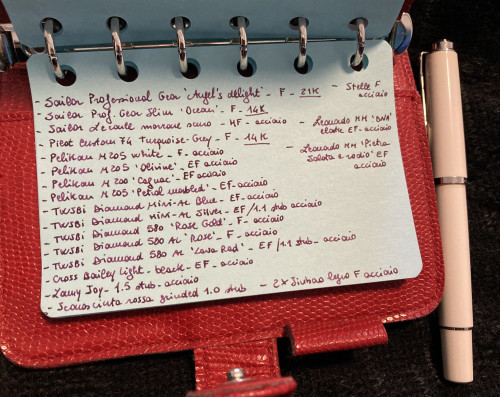 - Sailor Professional Gear 'Angel's delight' - F - 21K
- Sailor Prof. Gear Slim 'Ocean' - F - 14K
- Sailor Lecoule marrone scuro - MF - acciaio
- Pilot Custom 74 Turquoise-Grey - F - 14K
- Pelikan M205 white - F - acciaio
- Pelikan M205 'Olivine' - EF acciaio
- Pelikan M200 'Cognac' - EF acciaio
- Pelikan M205 'Petrol marbled' - EF - acciaio
- TWSBI Diamond Mini-AL Blue - EF - acciaio
- TWSBI Diamond Mini-AL Silver - EF / 1.1 stub acciaio
- TWSBI Diamond 580 'Rose Gold' - F - acciaio
- TWSBI Diamond 580 AL 'Rose' - F - acciaio
- TWSBI Diamond 580 AL 'Lava Red' - EF / 1.1 stub - acciaio
- Cross Bailey Light - black - EF - acciaio
- Lamy Joy - 1.5 stub - acciaio
- Sconosciuta rossa grinded 1.0 stub
- Stelle F
acciaio
- Leonardo MM 'DNA'
EF - acciaio
- Leonardo MM 'Pietra
Salata e rodio' EF
acciaio
- 2 x Jinhao legno F acciaio